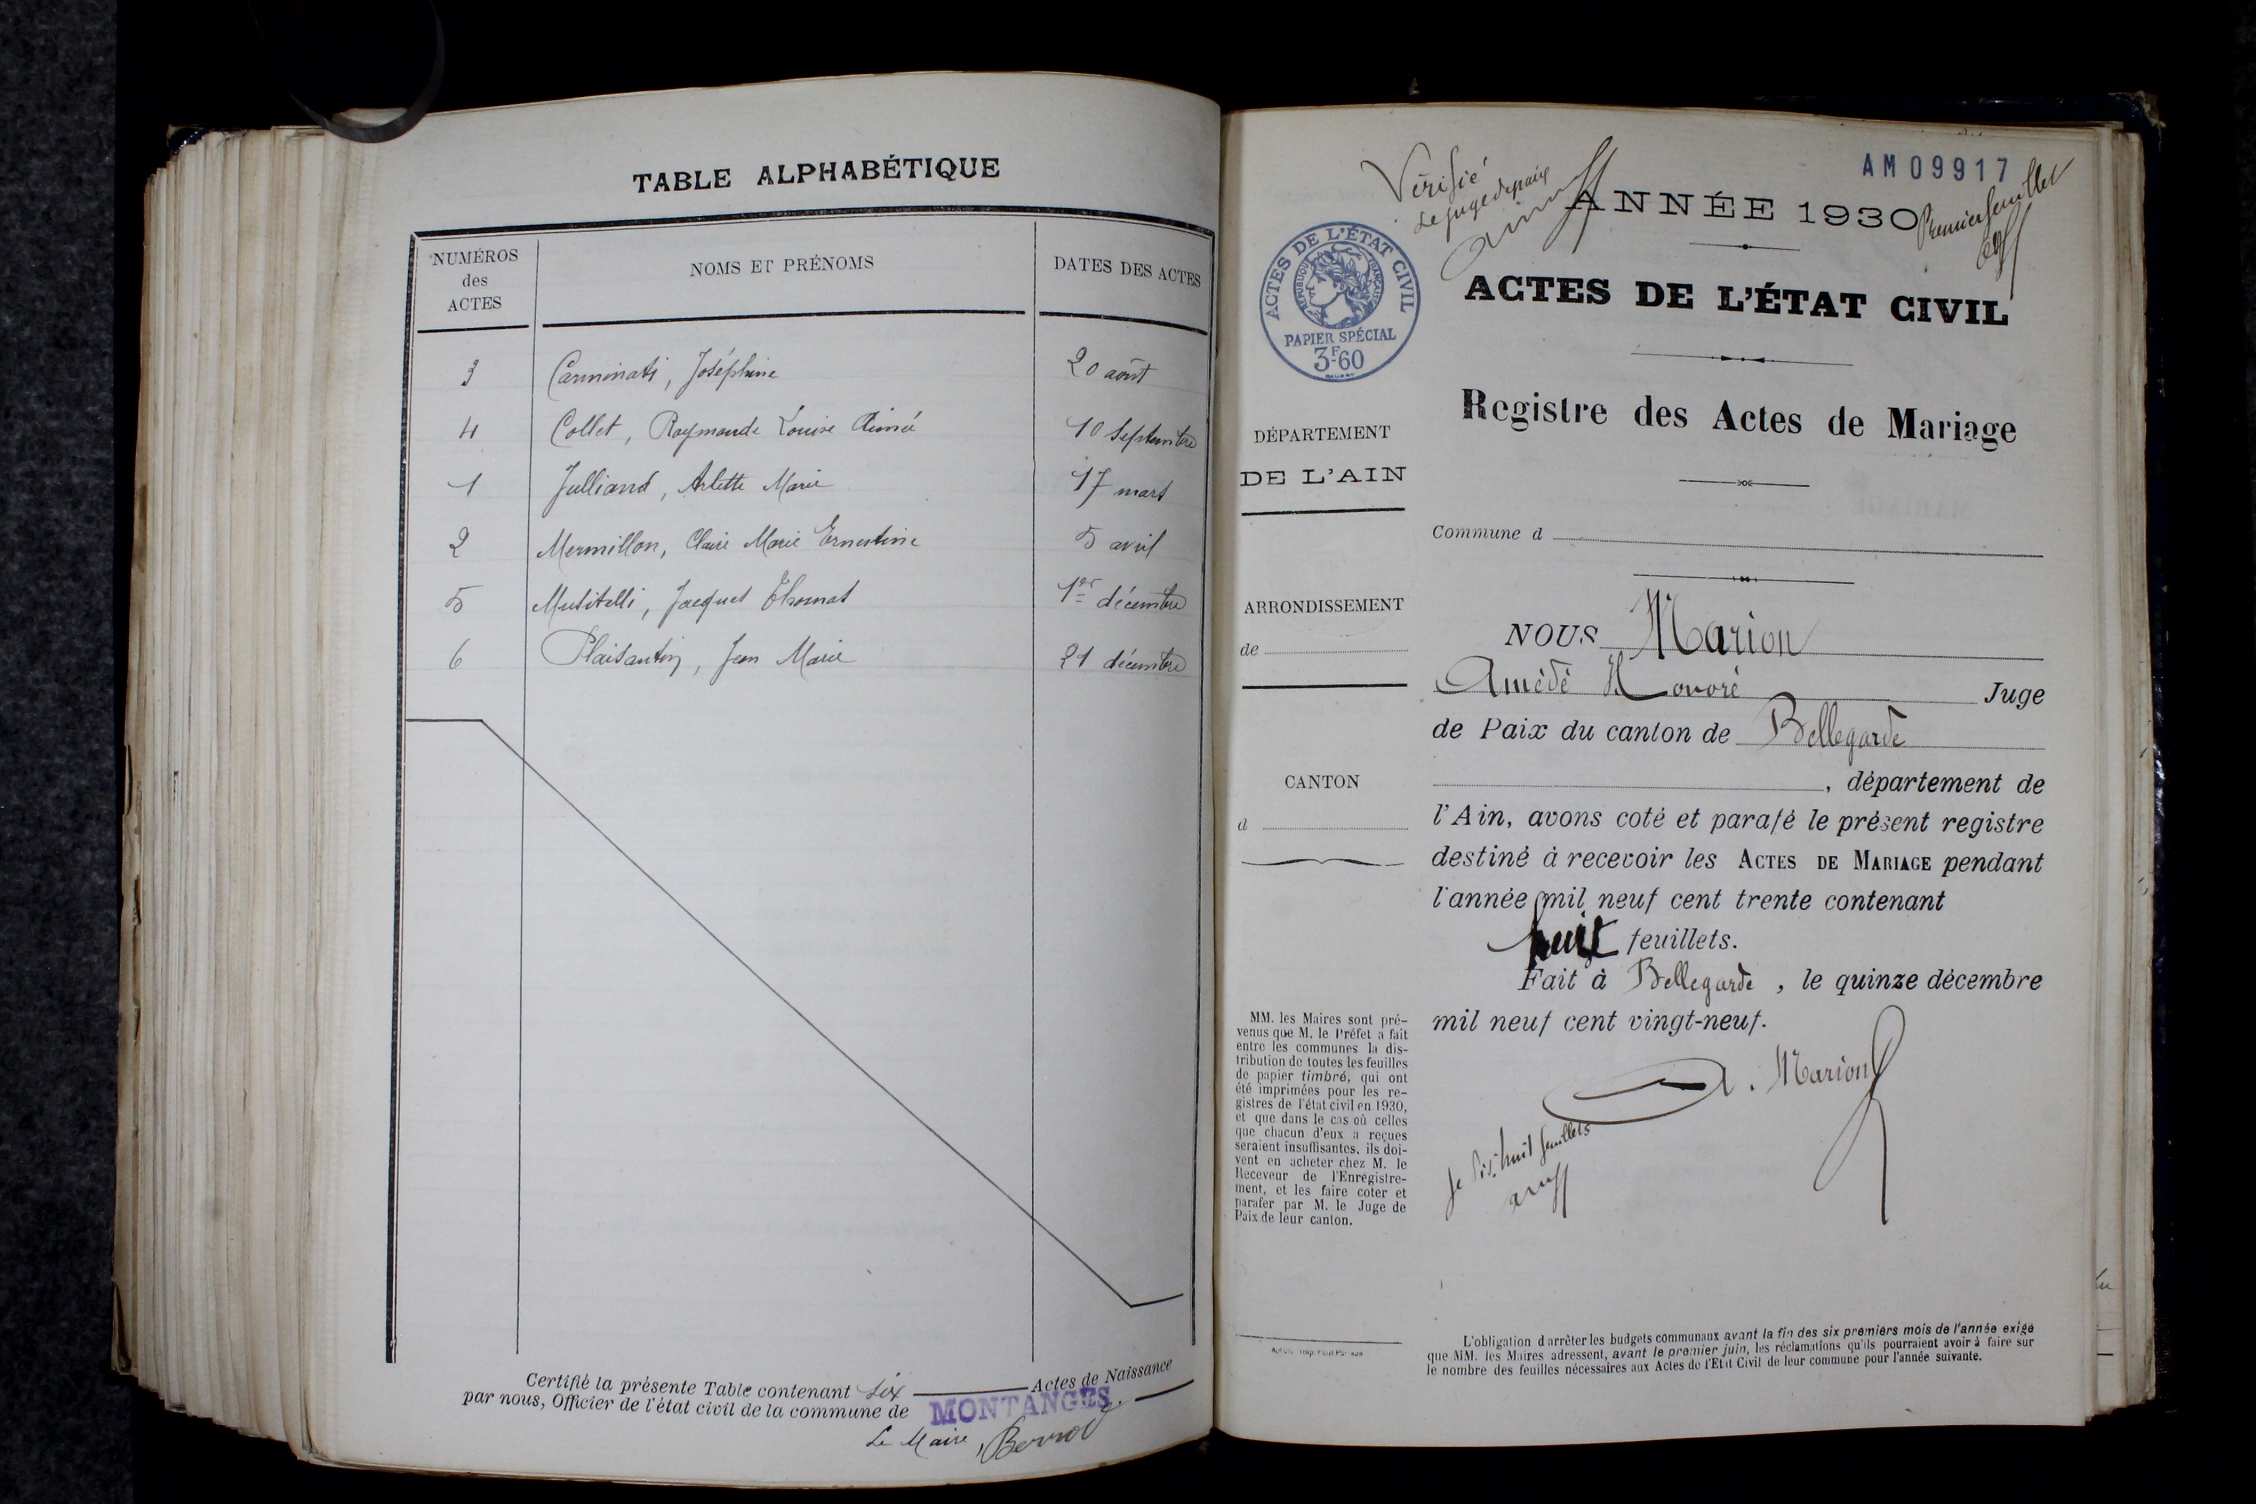 TABLE ALPHABÉTIQUE
NUMÉROS des ACTES
NOMS ET PRÉNOMS
DATES DES ACTES
3 Carminati, Joséphine 20 août
4 Collet, Raymonde Louise Aimée 10 septembre
1 Julliand, Arlette Marie 17 mars
2 Mermillon, Claire Marie Ernestine 5 avril
5 Musitelli, Jacques Thomas 1er décembre
6 Plaisantin, Jean Marie 21 décembre
Certifié la présente Table contenant six Actes de Naissance
par nous, Officier de l'état civil de la commune de MONTANGES.
Le Maire,
AM 09917
Vérifié
Le juge de paix
Premier feuillet
ANNÉE 1930
ACTES DE L'ÉTAT CIVIL
RÉPUBLIQUE FRANÇAISE
PAPIER SPÉCIAL
3F-60
ACTES DE L'ÉTAT CIVIL
Registre des Actes de Mariage
DÉPARTEMENT
DE L'AIN
Commune d
ARRONDISSEMENT
de
CANTON
d
NOUS Marion
Amédé Honoré Juge
de Paix du canton de Bellegarde
, département de
l'Ain, avons coté et parafé le présent registre
destiné à recevoir les ACTES DE MARIAGE pendant
l'année mil neuf cent trente contenant
huit feuillets.
Fait à Bellegarde, le quinze décembre
mil neuf cent vingt-neuf.
A. Marion
Je dis huit feuillets
MM. les Maires sont pré-
venus que M. le Préfet a fait
entre les communes la dis-
tribution de toutes les feuilles
de papier timbré, qui ont
été imprimées pour les re-
gistres de l'état civil en 1930,
et que dans le cas où celles
que chacun d'eux a reçues
seraient insuffisantes, ils doi-
vent en acheter chez M. le
Receveur de l'Enregistre-
ment, et les faire coter et
parafer par M. le Juge de
Paix de leur canton.
L'obligation d'arrêter les budgets communaux avant la fin des six premiers mois de l'année exige
que MM. les Maires adressent, avant le premier juin, les réclamations qu'ils pourraient avoir à faire sur
le nombre des feuilles nécessaires aux Actes de l'Etat Civil de leur commune pour l'année suivante.